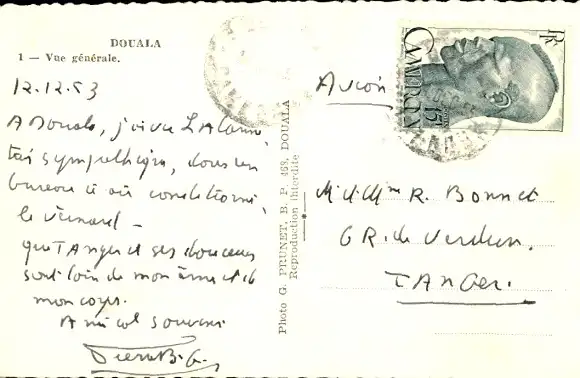 DOUALA
1 — Vue générale.
12.12.53
A Douala, j'ai vu
très sympathique, dans un
bureau à air conditionné,
le
que TANger et ses douceurs
sont loin de mon âme et de
mon corps.
Amical souvenir
Pierre B.G.
Photo G. PRUNET, B. P. 468, DOUALA
Reproduction interdite
RF
CAMEROUN
15F
Avion
M. & Mme R. Bonnet
6 R. de Verdun.
TANGer.